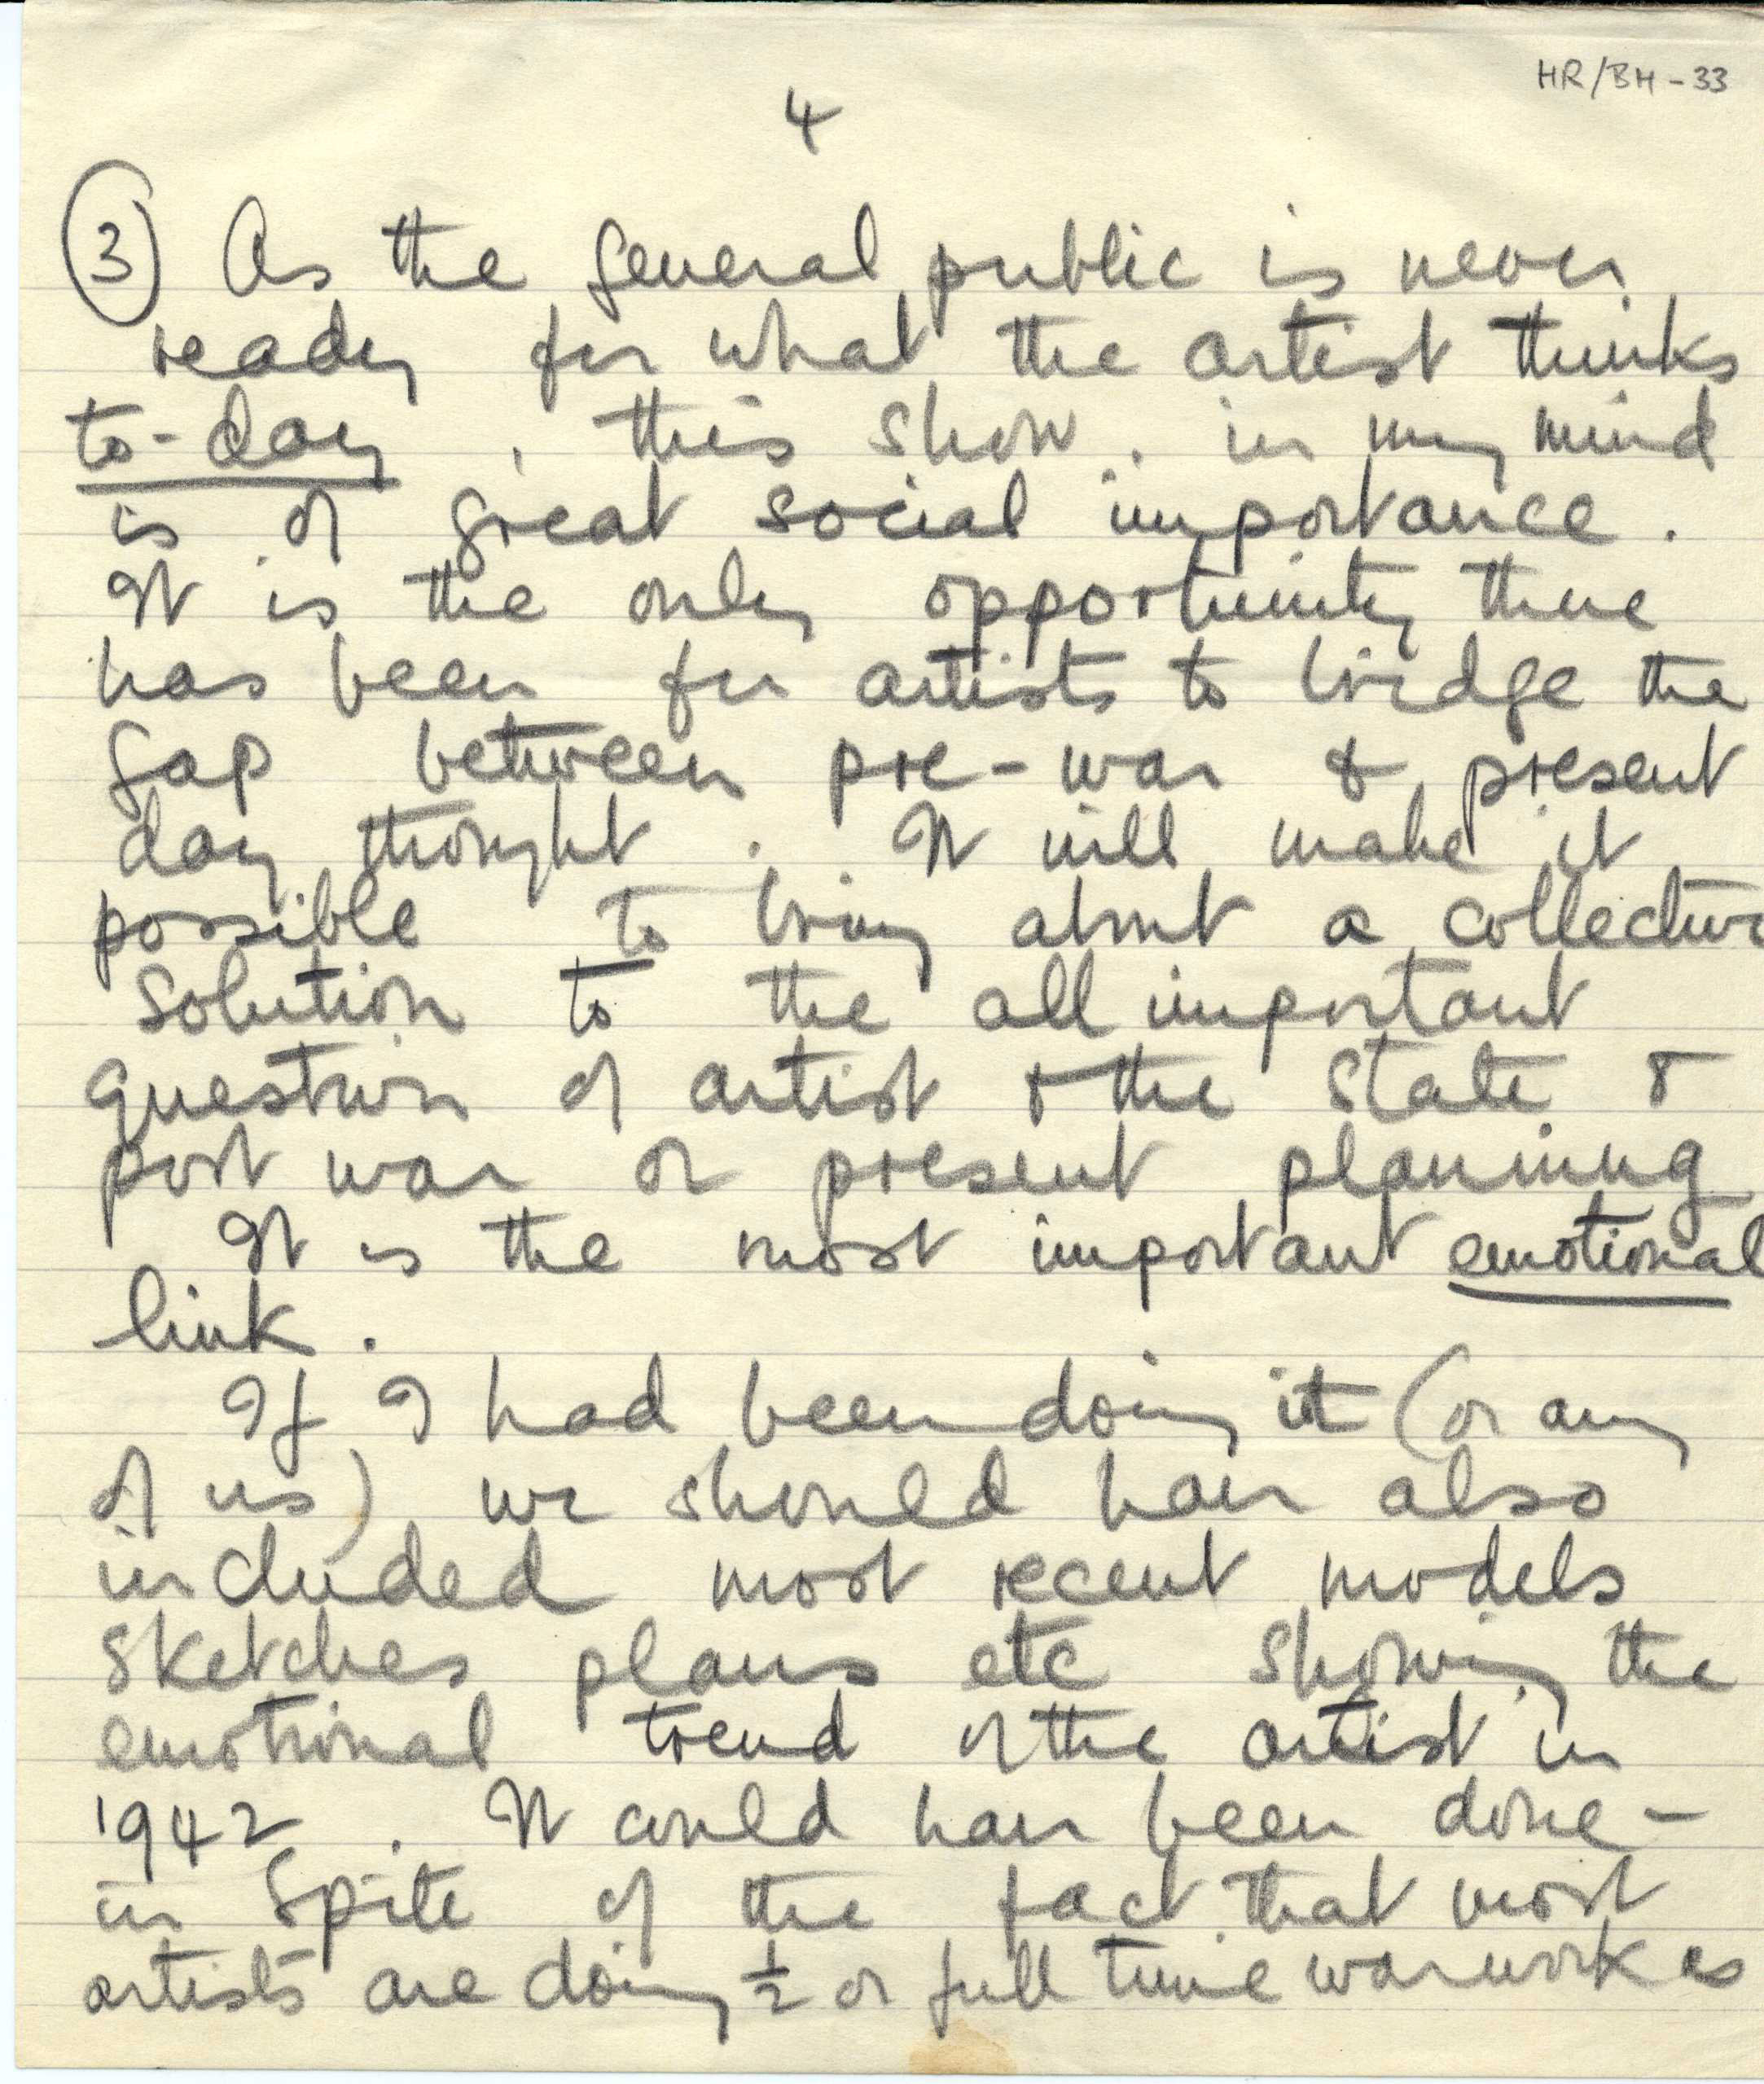 HR/BH - 33
4
③ As the general public is never
ready for what the artist thinks
to-day, this show, in my mind
is of great social importance.
It is the only opportunity there
has been for artists to bridge the
gap between pre-war & present
day thought. It will make it
possible to bring about a collective
solution to the all important
question of artist & the State &
post war or present planning
It is the most important emotional
link.
If I had been doing it (or any
of us) we should have also
included most recent models
sketches plans etc showing the
emotional trend of the artist in
1942. It could have been done -
in spite of the fact that most
artists are doing ½ or full time war work as